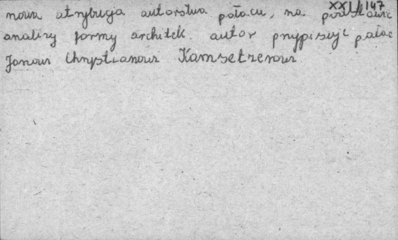 XXI/147
nowa atrybucja autorstwa pałacu, na podstawie
analizy formy architek. autor przypisuje pałac
Janowi Chrystianowi Kamsetzerowi